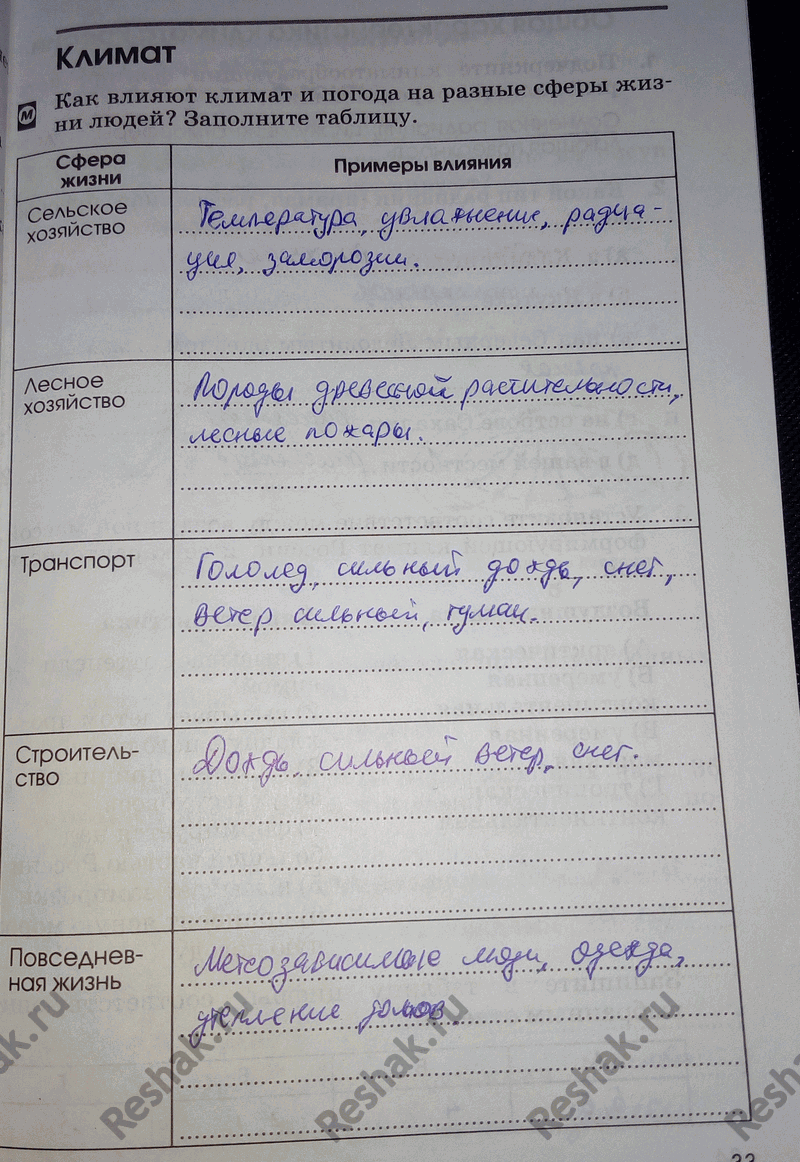 Климат
М
Как влияют климат и погода на разные сферы жиз-
ни людей? Заполните таблицу.
Сфера
жизни
Примеры влияния
Сельское
хозяйство
Температура, увлажнение, радиа-
ция, заморозки.
Лесное
хозяйство
Породы древесной растительности,
лесные пожары.
Транспорт
Гололед, сильный дождь, снег,
ветер сильный, туман.
Строитель-
ство
Дождь, сильный ветер, снег.
Повседнев-
ная жизнь
Метеозависимые люди, одежда,
утепление домов.
Reshak.ru
Reshak.ru
Reshak.ru
33